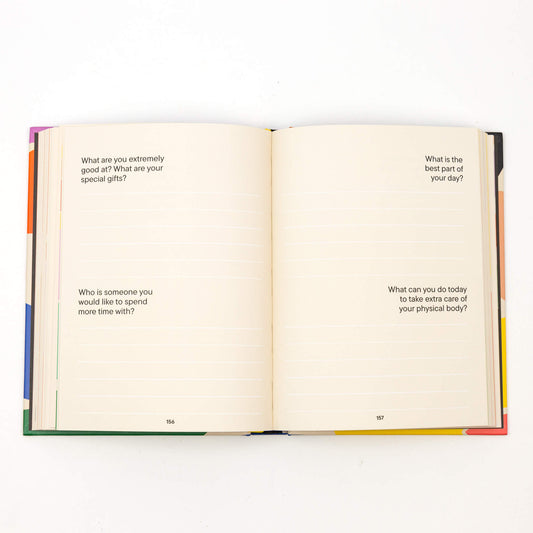 What are you extremely
good at? What are your
special gifts?
Who is someone you
would like to spend
more time with?
156
What is the
best part of
your day?
What can you do today
to take extra care of
your physical body?
157